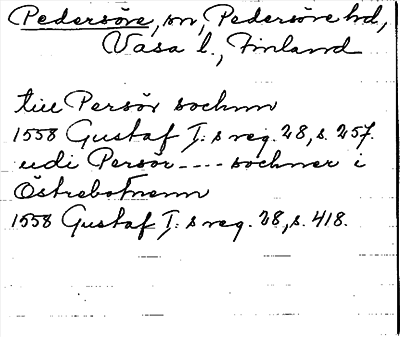 Pedersöre, sn, Pedersöre hd,
Vasa l., Finland
till Persör sochnn
1558 Gustaf I:s reg. 28, s. 257.
udi Persör---- sochner i
Östrebotnenn
1558 Gustaf I:s reg. 28, s. 418.